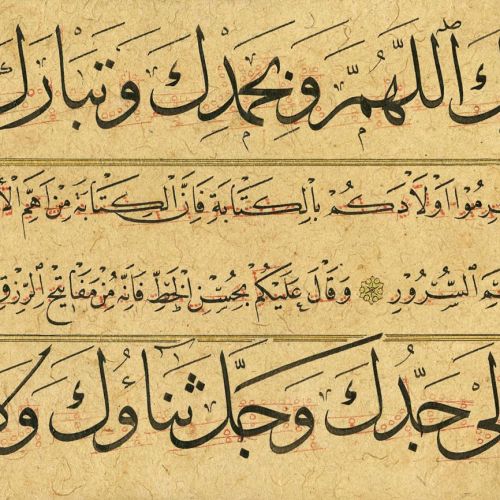 ك اللَّهُمَّ وَبِحَمْدِكَ وَتَبَارَك
رِمُوا اَوْلَادَكُمْ بِالْكِتَابَةِ فَاِنَّ الْكِتَابَةَ مِنْ اَهَمِّ الْأ
ـمِ السُّرُورِ وَقَالَ عَلَيْكُمْ بِحُسْنِ الْخَطِّ فَاِنَّهُ مِنْ مَفَاتِيحِ الرِّزْقِ
لى جَدُّكَ وَجَلَّ ثَنَاؤُكَ وَلَا